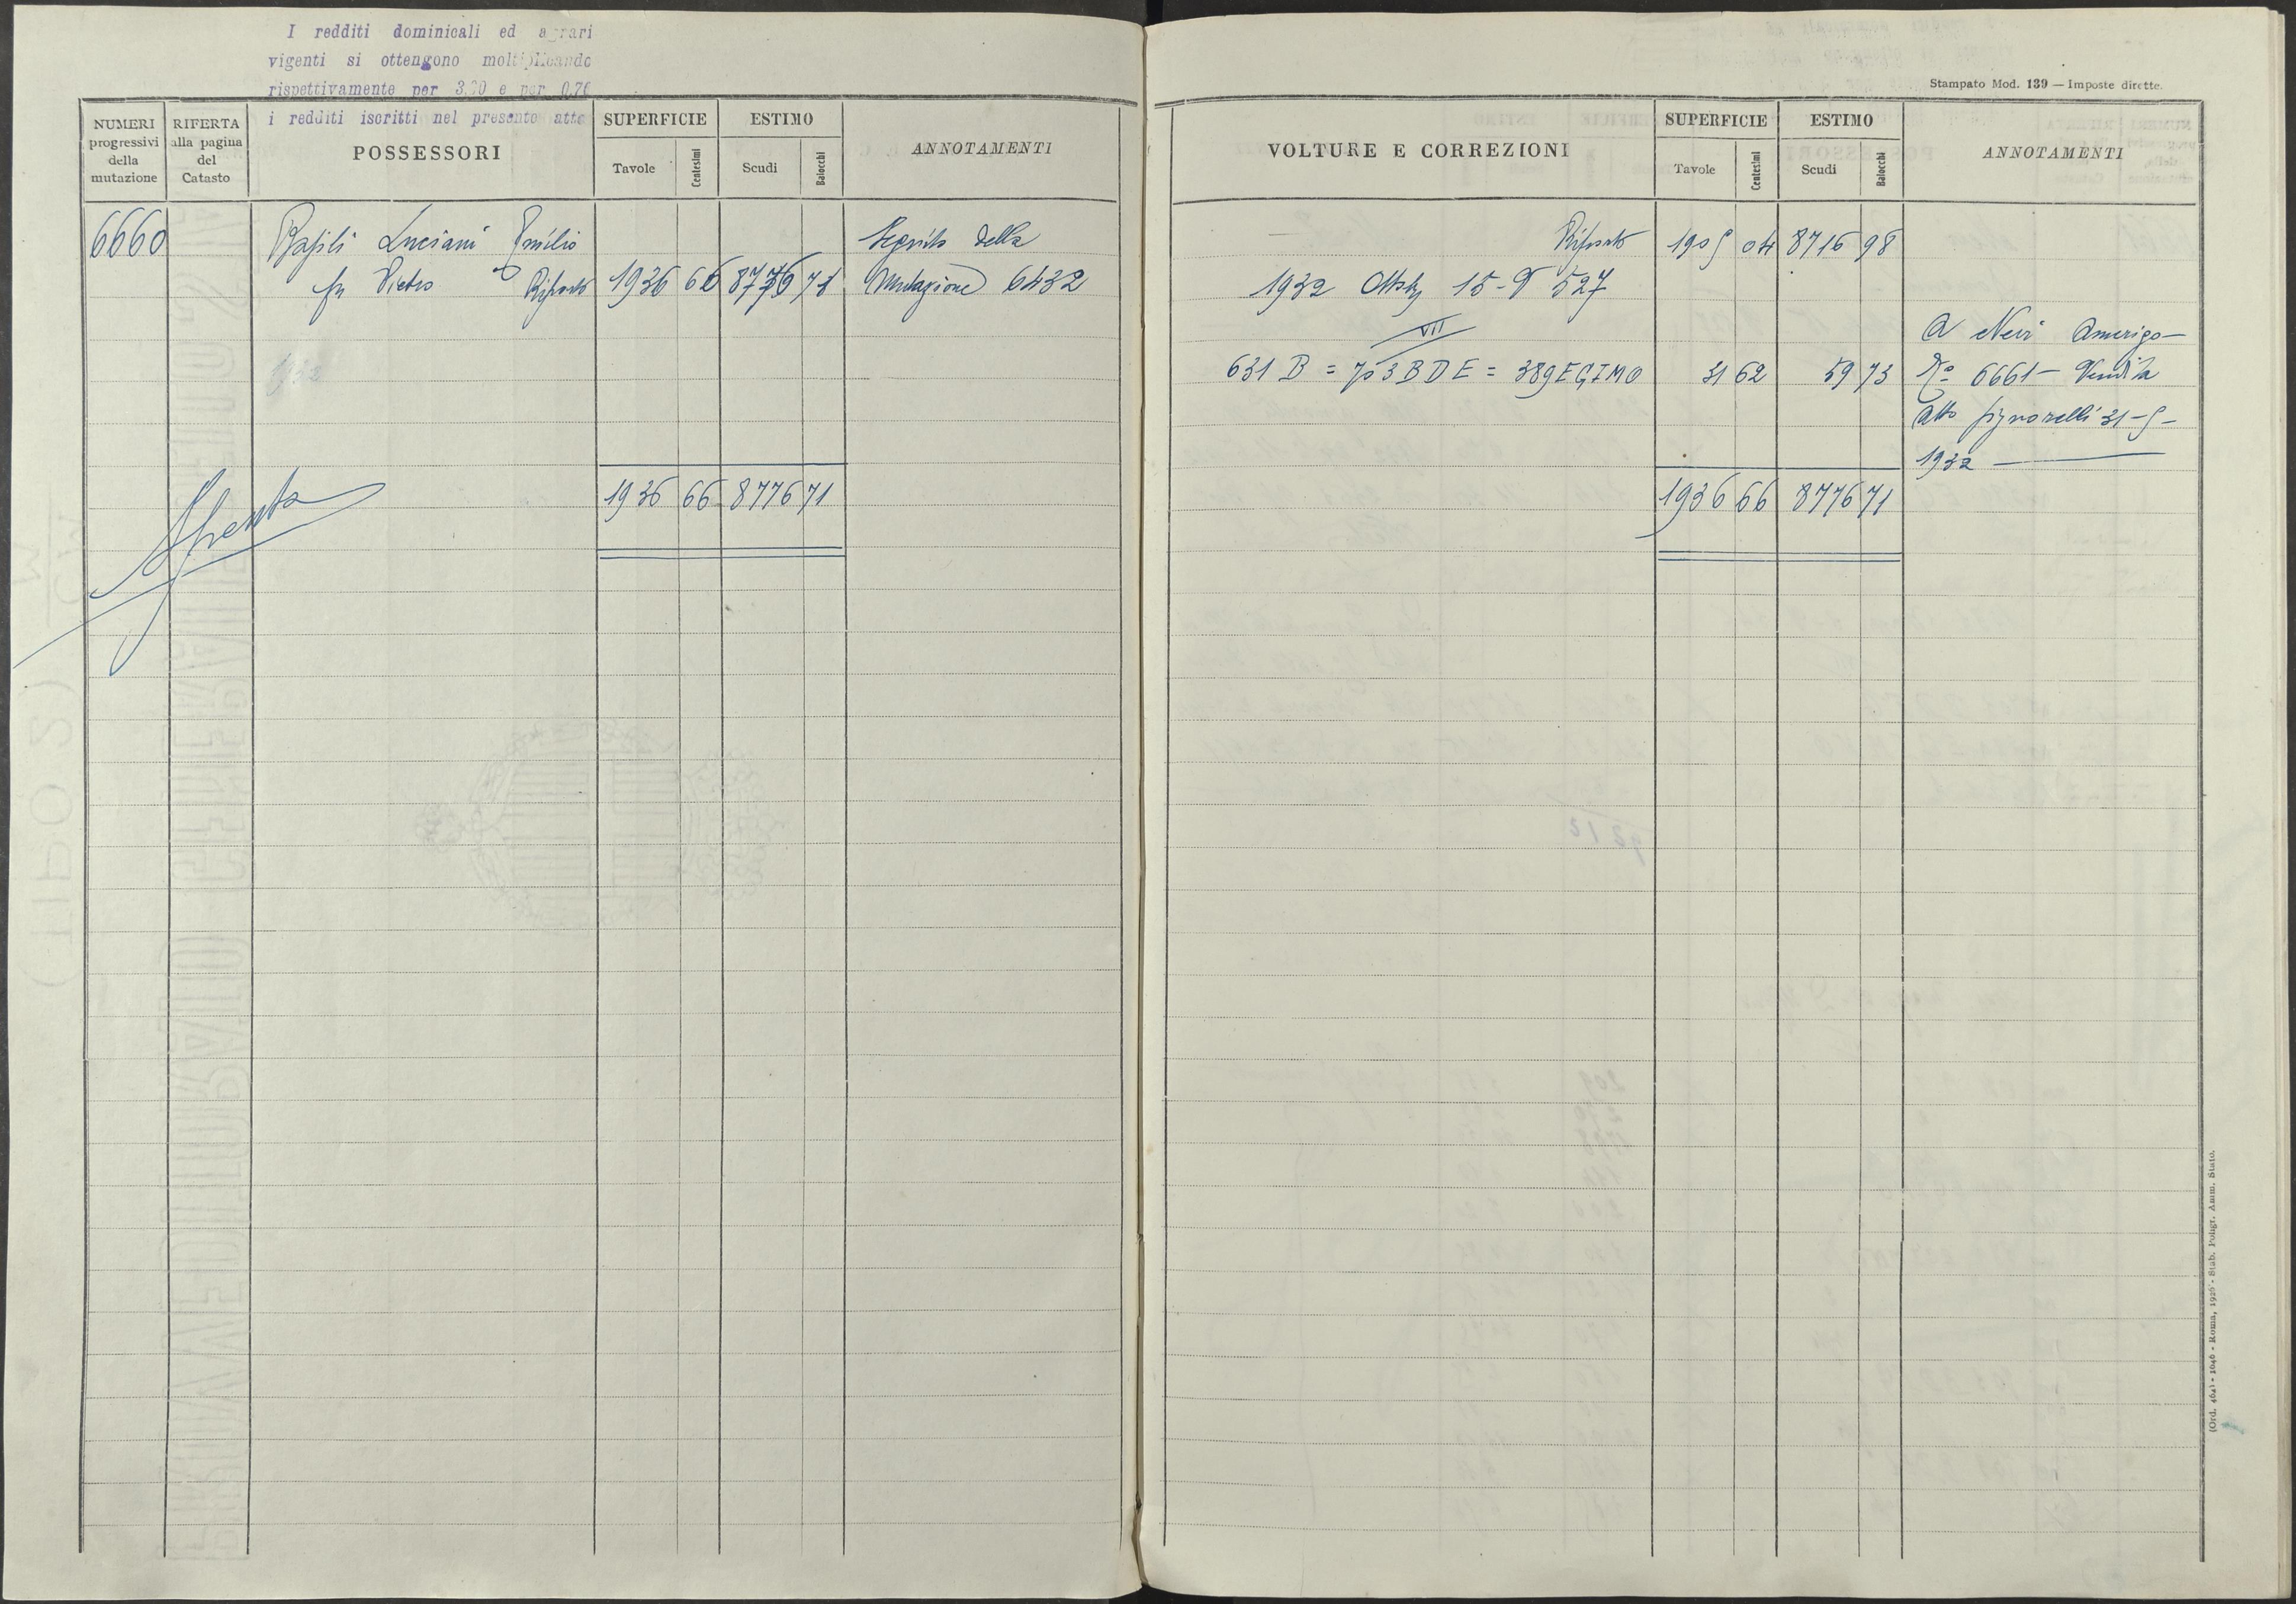 I redditi dominicali ed agrari
vigenti si ottengono moltiplicando
rispettivamente per 3,70 e per 0,70
i redditi iscritti nel presente atto
NUMERI progressivi della mutazione
RIFERTA alla pagina del Catasto
POSSESSORI
SUPERFICIE
Tavole Centesimi
ESTIMO
Scudi Baiocchi
ANNOTAMENTI
6660 Basili Luciani Emilio Seguito della
fu Pietro Riporto 1936 66 8776 71 Mutazione 6432
1936 66 8776 71
Spenta
Stampato Mod. 139 — Imposte dirette.
VOLTURE E CORREZIONI
SUPERFICIE
Tavole Centesimi
ESTIMO
Scudi Baiocchi
ANNOTAMENTI
Riporto 1905 04 8716 98
1932 15 - 527
VII
A Neri Amerigo —
631 B = 753 B D E = 389 EGIMO 31 62 59 73 N° 6661 — Vendita
Atto Signorelli 31-5-
1932
1936 66 8776 71
(Ord. 464) - 1046 - Roma, 1926 - Stab. Poligr. Amm. Stato.
(TIPO 2)